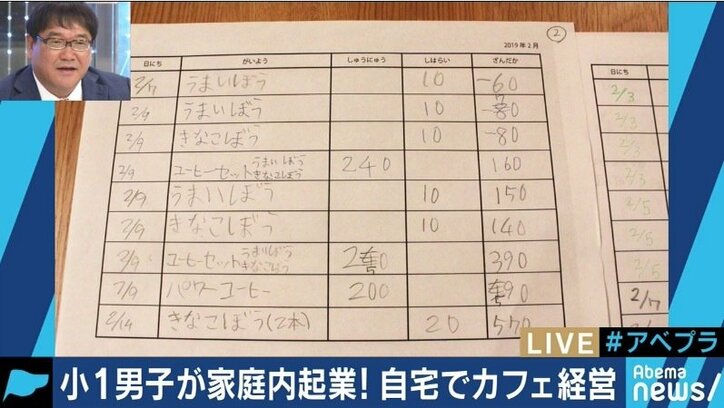 ②
2019年2月
日にち がいよう しゅうにゅう しはらい ざんだか
2/7 うまいぼう 10 -60
2/9 うまいぼう 10
2/9 きなこぼう 10 -80
2/9 コーヒーセット うまいぼう きなこぼう 240 160
2/9 うまいぼう 10 150
2/9 きなこぼう 10 140
2/9 コーヒーセット うまいぼう きなこぼう 390
2/9 パワーコーヒー 200
2/14 きなこぼう(2本) 20 570
日にち
2/3
2/3
2/5
2/5
2/7
LIVE #アベプラ
小1男子が家庭内起業!自宅でカフェ経営
Abema
news/